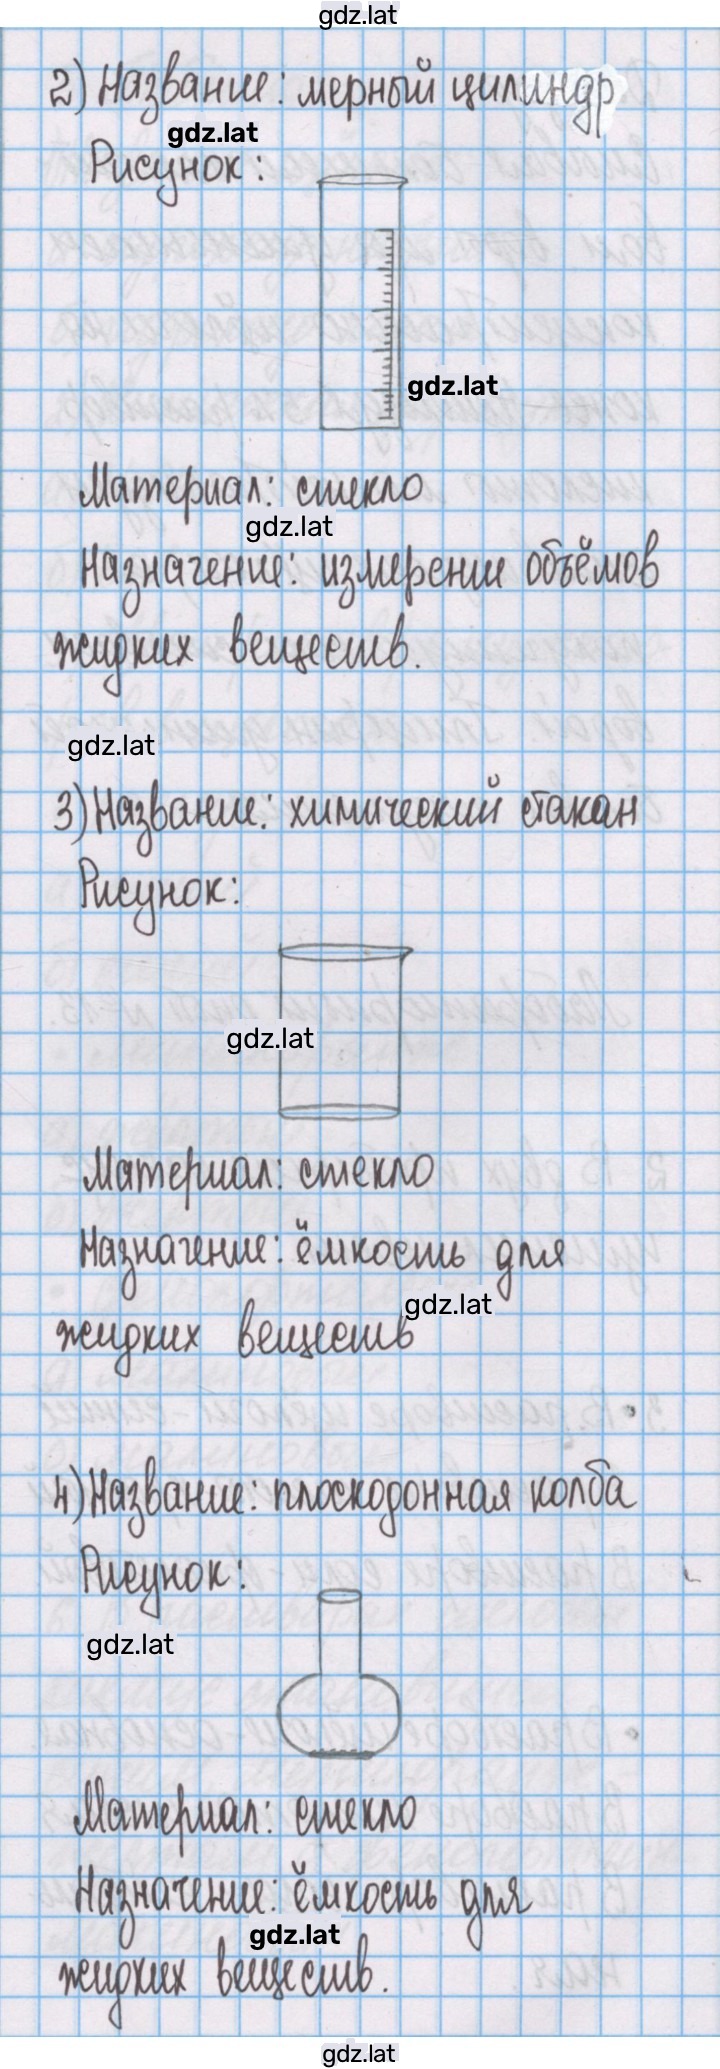 gdz.lat
2) Название: мерный цилиндр
gdz.lat
Рисунок:
gdz.lat
Материал: стекло
gdz.lat
Назначение: измерение объёмов
жидких веществ.
gdz.lat
3) Название: химический стакан
Рисунок:
gdz.lat
Материал: стекло
Назначение: ёмкость для
gdz.lat
жидких веществ
4) Название: плоскодонная колба
Рисунок:
gdz.lat
Материал: стекло
Назначение: ёмкость для
gdz.lat
жидких веществ.
gdz.lat